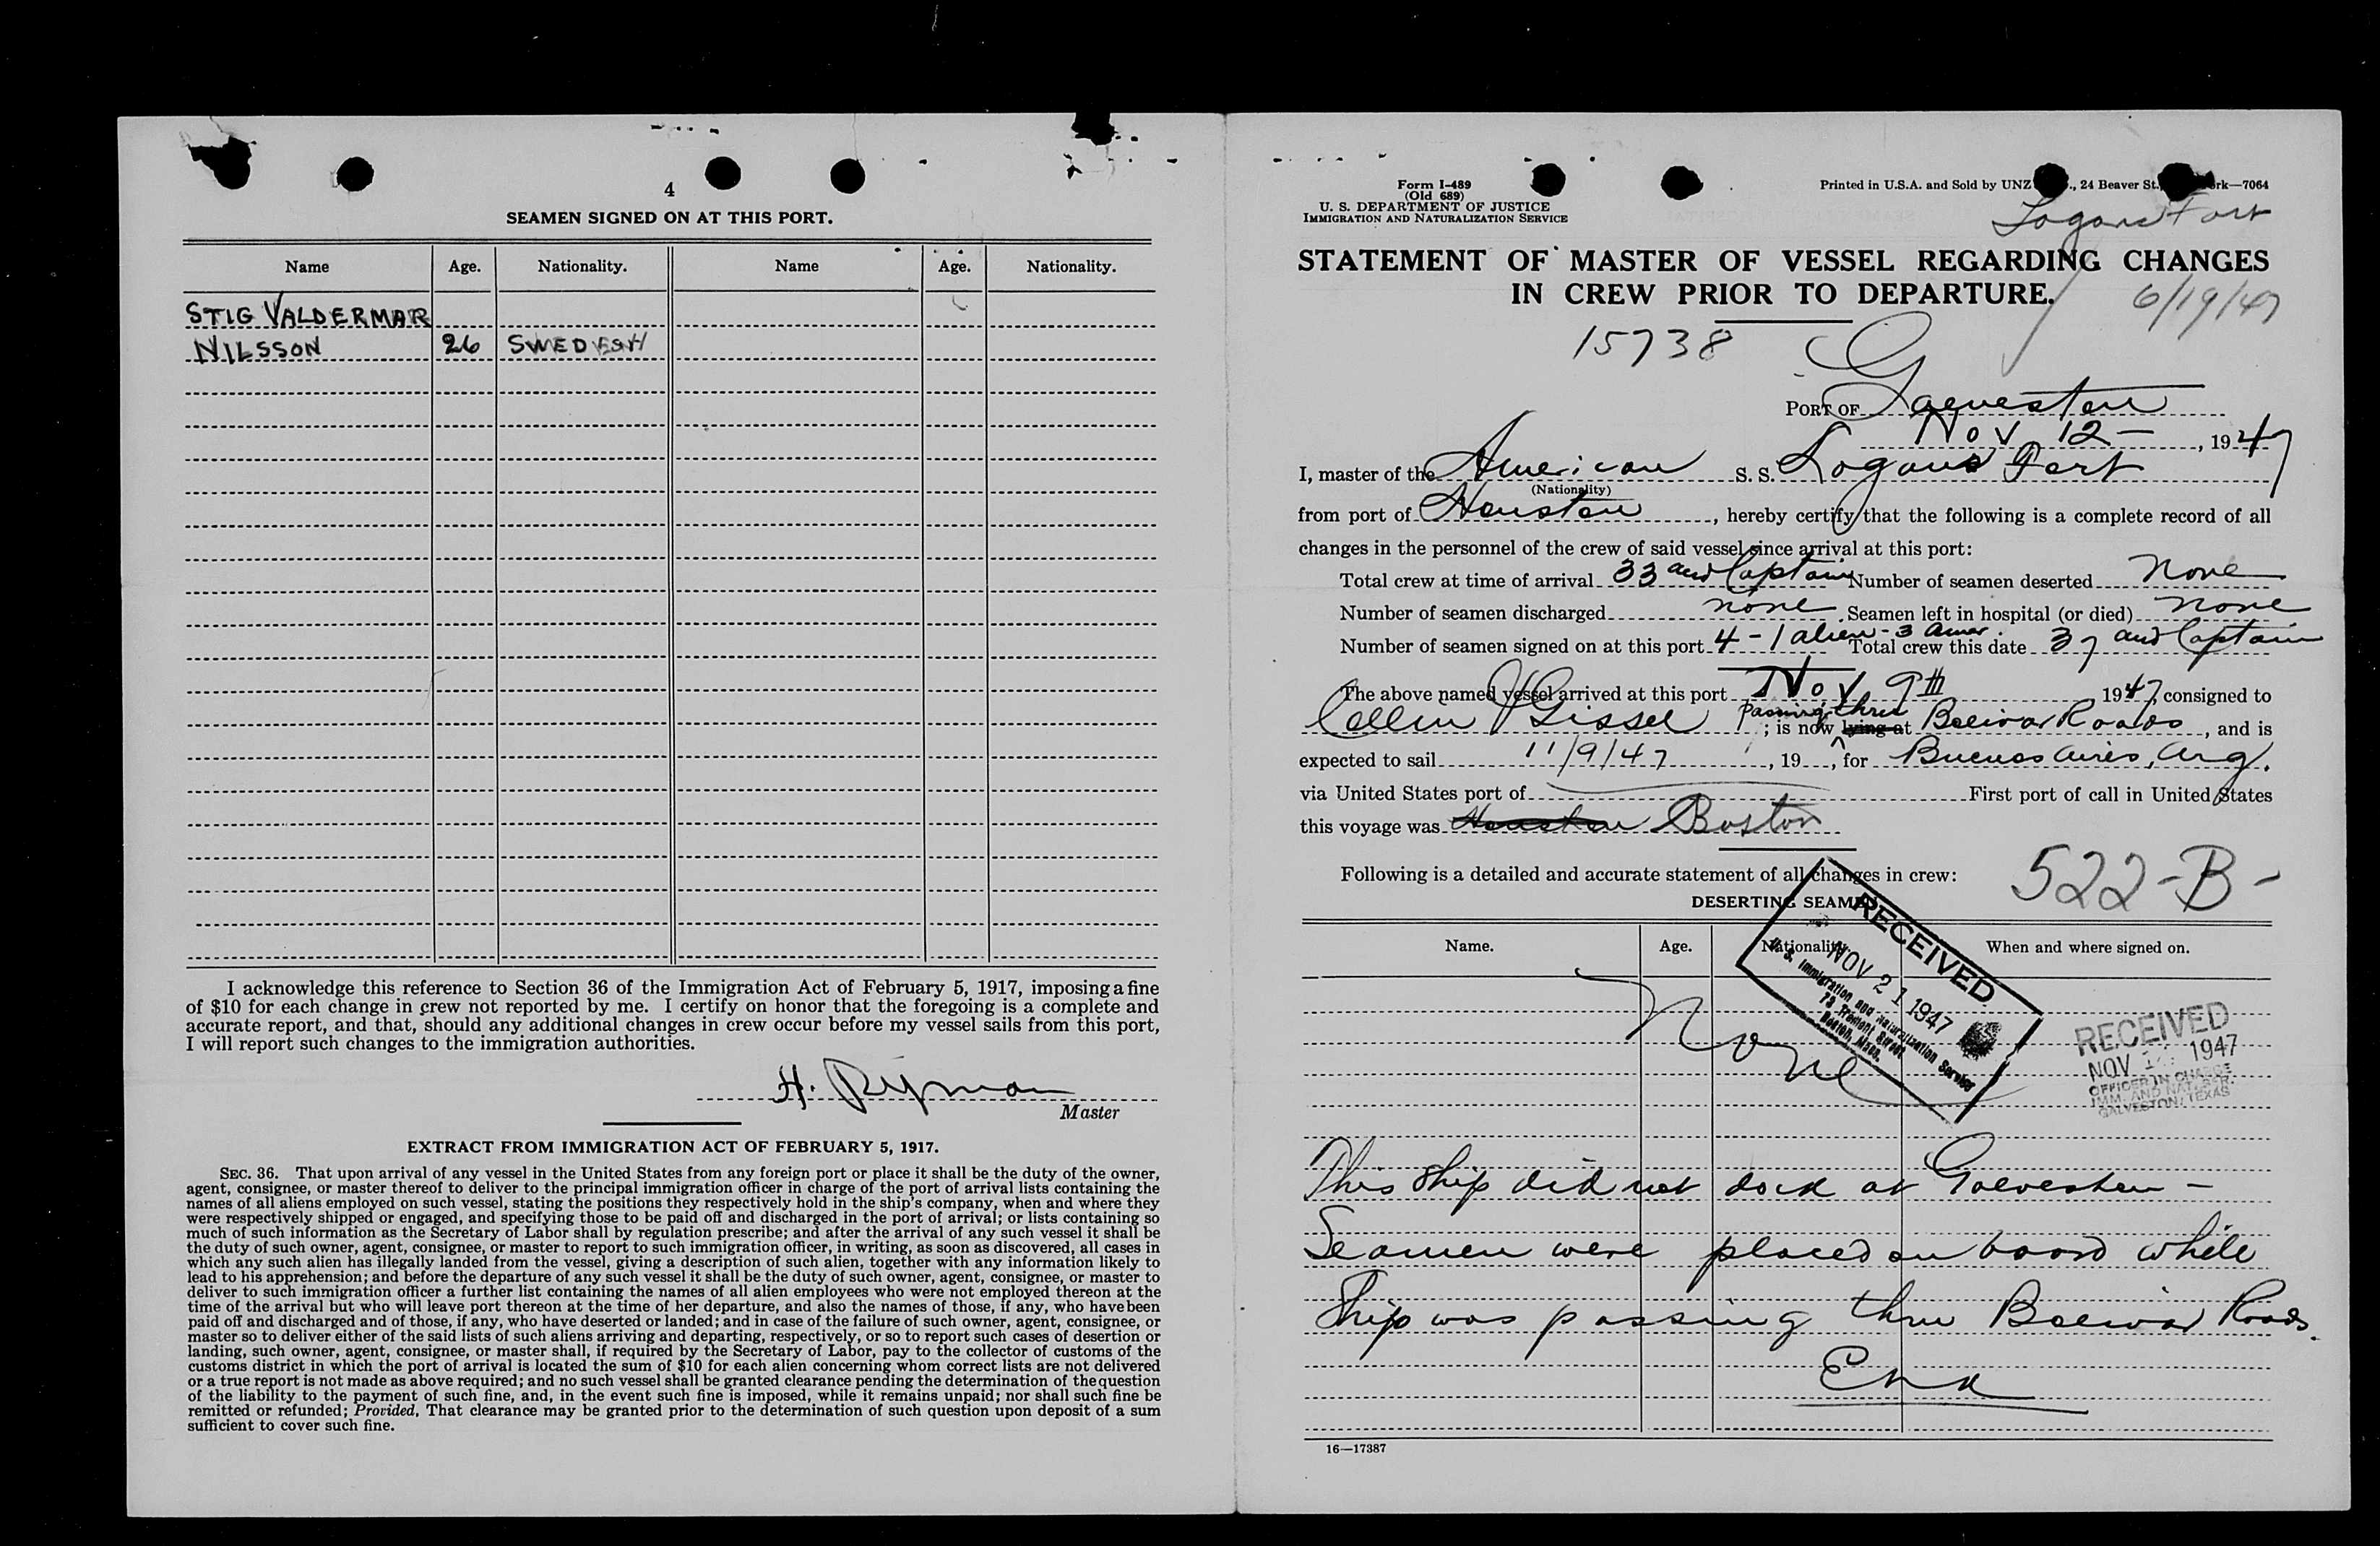 4
SEAMEN SIGNED ON AT THIS PORT.
Name Age. Nationality. Name Age. Nationality.
STIG VALDERMAR
NILSSON 26 SWEDESH
I acknowledge this reference to Section 36 of the Immigration Act of February 5, 1917, imposing a fine
of $10 for each change in crew not reported by me. I certify on honor that the foregoing is a complete and
accurate report, and that, should any additional changes in crew occur before my vessel sails from this port,
I will report such changes to the immigration authorities.
H.
Master
EXTRACT FROM IMMIGRATION ACT OF FEBRUARY 5, 1917.
SEC. 36. That upon arrival of any vessel in the United States from any foreign port or place it shall be the duty of the owner,
agent, consignee, or master thereof to deliver to the principal immigration officer in charge of the port of arrival lists containing the
names of all aliens employed on such vessel, stating the positions they respectively hold in the ship's company, when and where they
were respectively shipped or engaged, and specifying those to be paid off and discharged in the port of arrival; or lists containing so
much of such information as the Secretary of Labor shall by regulation prescribe; and after the arrival of any such vessel it shall be
the duty of such owner, agent, consignee, or master to report to such immigration officer, in writing, as soon as discovered, all cases in
which any such alien has illegally landed from the vessel, giving a description of such alien, together with any information likely to
lead to his apprehension; and before the departure of any such vessel it shall be the duty of such owner, agent, consignee, or master to
deliver to such immigration officer a further list containing the names of all alien employees who were not employed thereon at the
time of the arrival but who will leave port thereon at the time of her departure, and also the names of those, if any, who have been
paid off and discharged and of those, if any, who have deserted or landed; and in case of the failure of such owner, agent, consignee, or
master so to deliver either of the said lists of such aliens arriving and departing, respectively, or so to report such cases of desertion or
landing, such owner, agent, consignee, or master shall, if required by the Secretary of Labor, pay to the collector of customs of the
customs district in which the port of arrival is located the sum of $10 for each alien concerning whom correct lists are not delivered
or a true report is not made as above required; and no such vessel shall be granted clearance pending the determination of the question
of the liability to the payment of such fine, and, in the event such fine is imposed, while it remains unpaid; nor shall such fine be
remitted or refunded; Provided, That clearance may be granted prior to the determination of such question upon deposit of a sum
sufficient to cover such fine.
Form I-489
(Old 689)
U. S. DEPARTMENT OF JUSTICE
IMMIGRATION AND NATURALIZATION SERVICE
Printed in U.S.A. and Sold by UNZ ., 24 Beaver St., rk—7064
Logans Fort
STATEMENT OF MASTER OF VESSEL REGARDING CHANGES
IN CREW PRIOR TO DEPARTURE.
6/19/47
15738
PORT OF Galveston
Nov 12 - , 1947
I, master of the American S. S. Logans Fort
(Nationality)
from port of Houston, hereby certify that the following is a complete record of all
changes in the personnel of the crew of said vessel since arrival at this port:
Total crew at time of arrival 33 and Captain Number of seamen deserted none
Number of seamen discharged none Seamen left in hospital (or died) none
Number of seamen signed on at this port 4 - 1 alien - 3 Amer. Total crew this date 37 and Captain
The above named vessel arrived at this port Nov 9th 1947, consigned to
Gissel passing thru ; is now lying at Bolivar Roads, and is
expected to sail 11/9/47, 19 , for Buenos Aires, Arg.
via United States port of First port of call in United States
this voyage was Houston Boston
Following is a detailed and accurate statement of all changes in crew:
522-B-
DESERTING SEAMEN
Name. Age. Nationality. When and where signed on.
None
RECEIVED
NOV 21 1947
U. S. Immigration and Naturalization Service
73 Tremont Street
Boston, Mass.
RECEIVED
NOV 1 1947
OFFICER IN CHARGE
IMM. AND NAT. SER.
GALVESTON, TEXAS
This ship did not dock at Galveston -
Seamen were placed on board while
Ship was passing thru Bolivar Roads.
16—17387